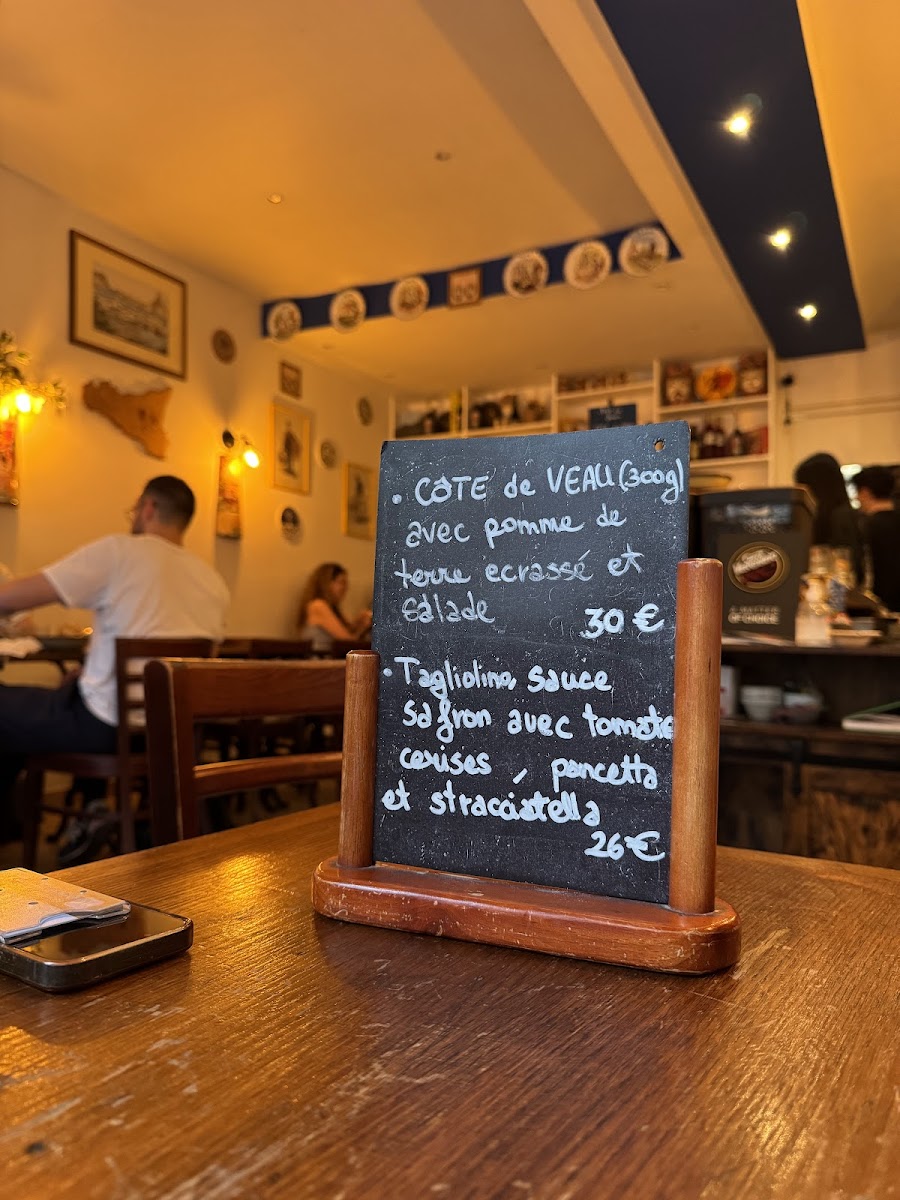 • CÔTE de VEAU (300g)
avec pomme de
terre ecrassé et
salade 30 €
• Tagliolino, sauce
safron avec tomate
cerises, pancetta
et stracciatella
26 €
A MATTER
OF CHOICE